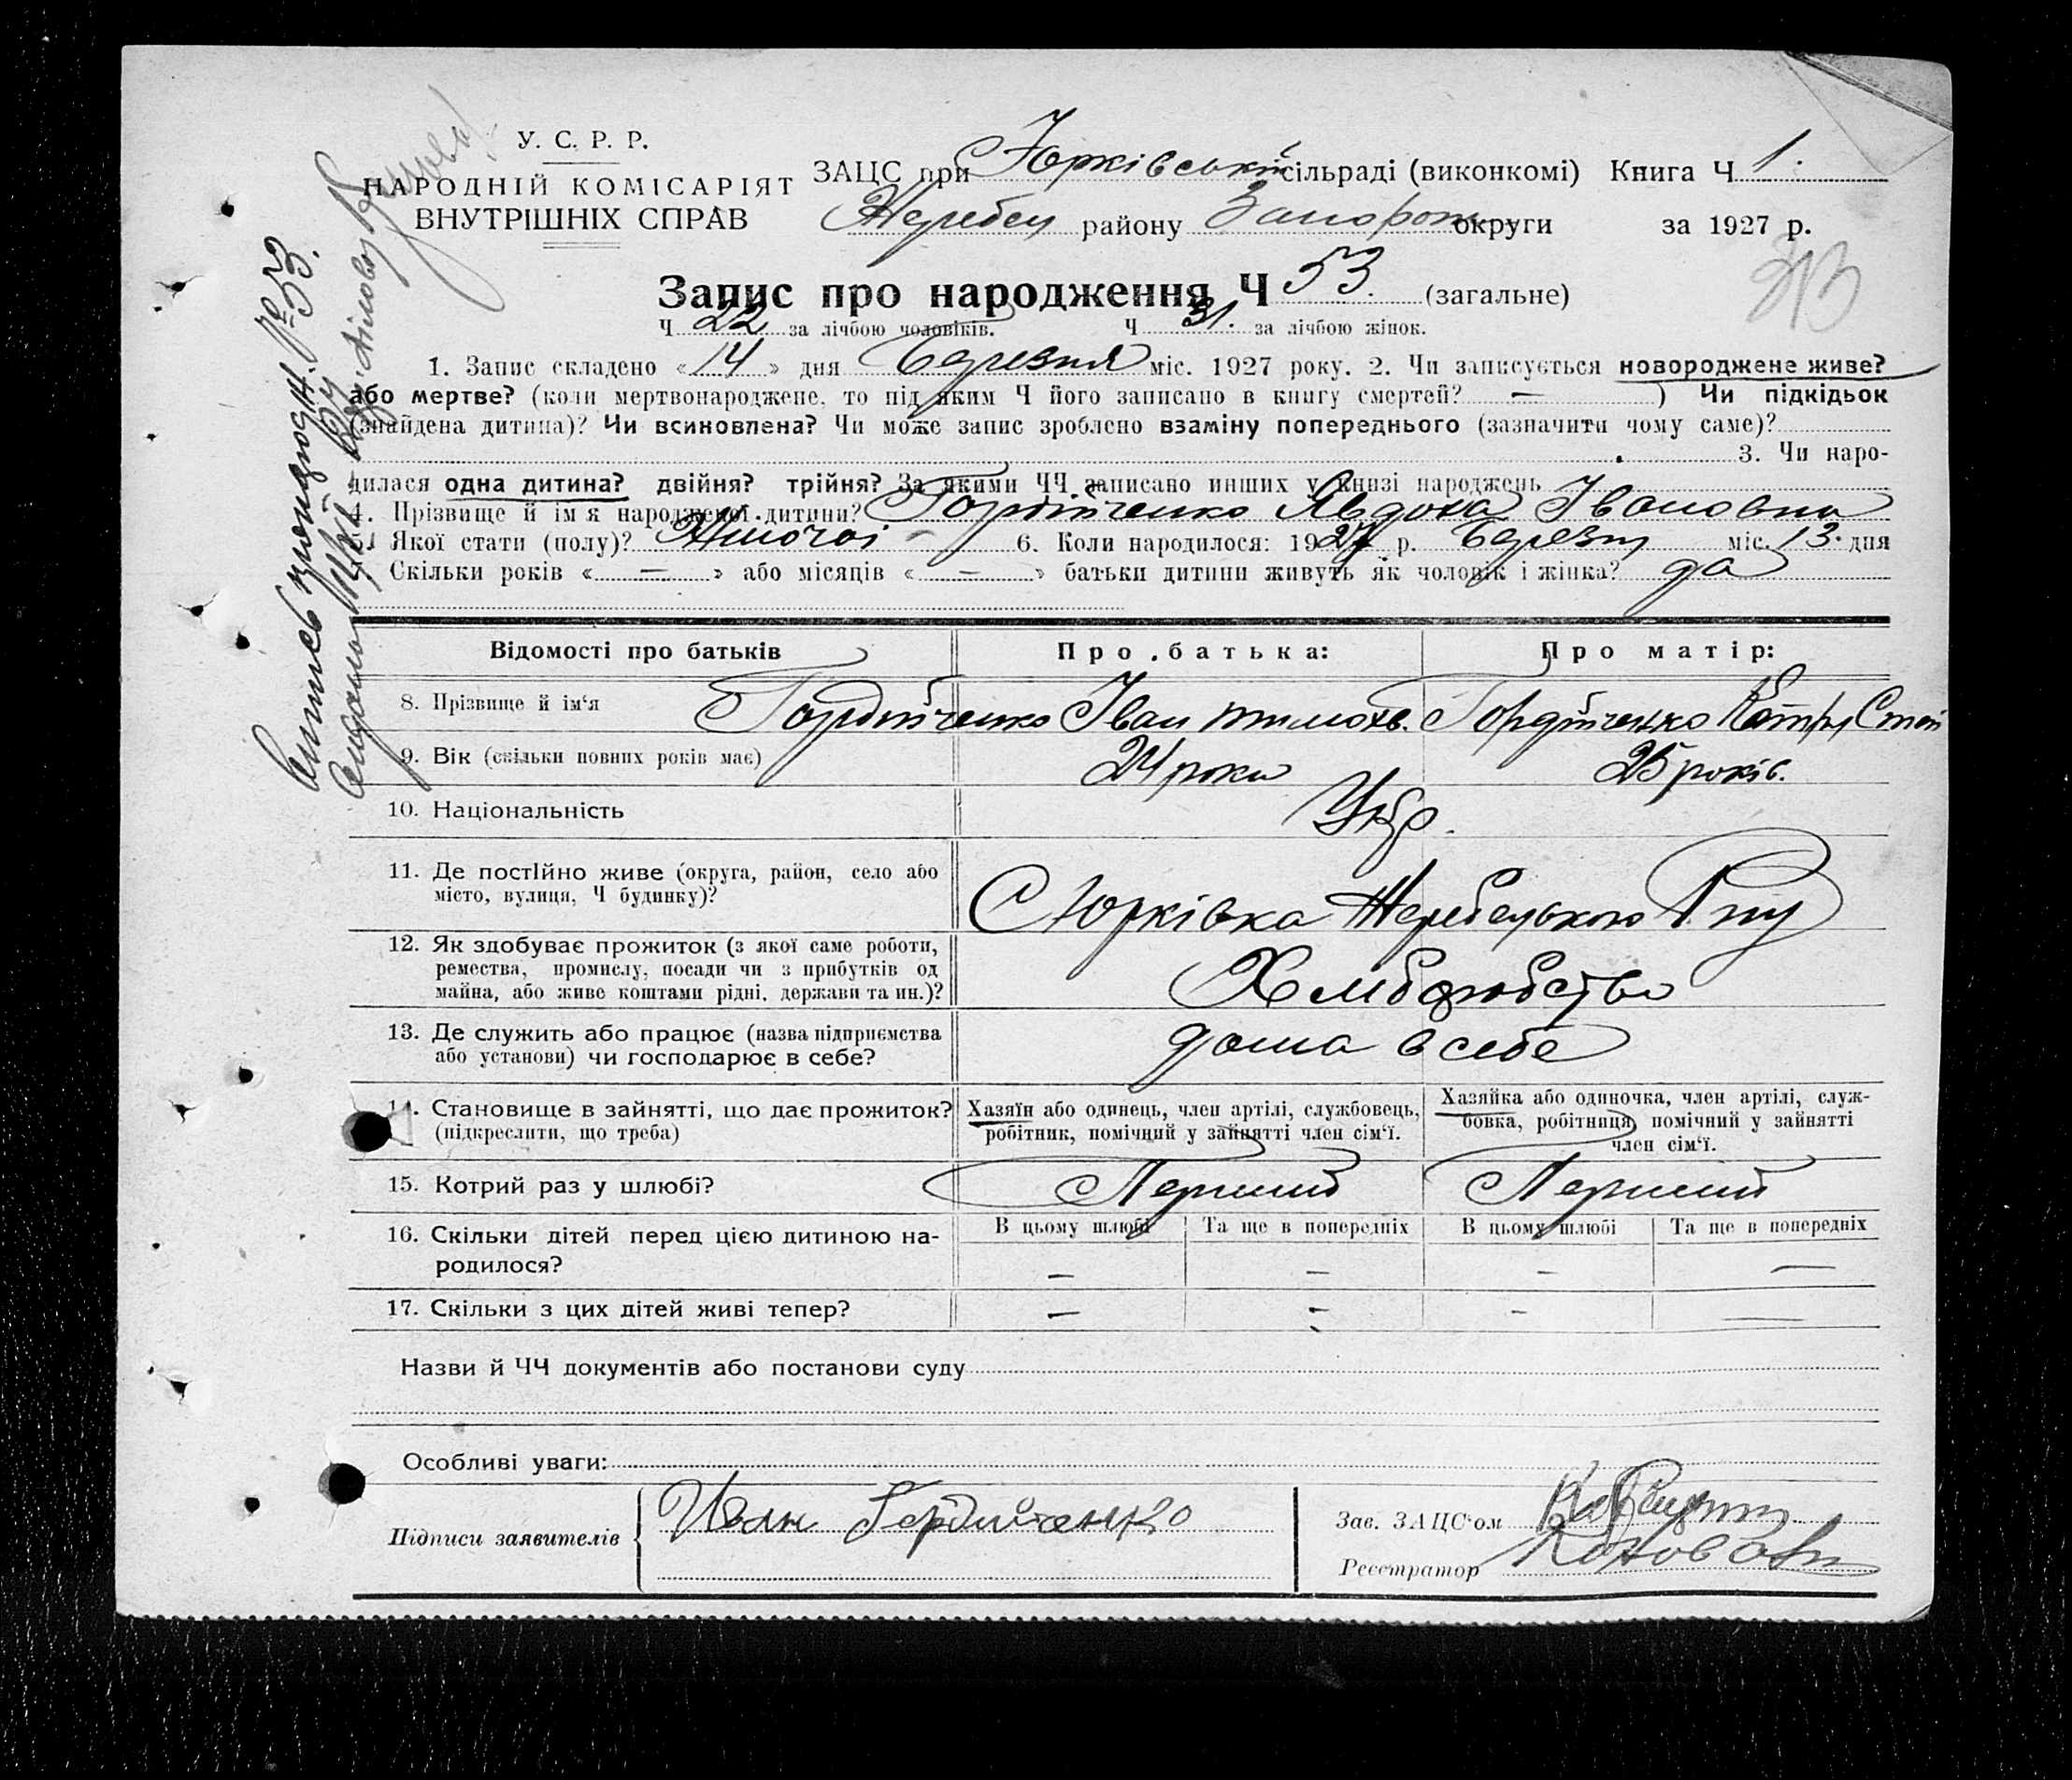 У. С. Р. Р.
НАРОДНІЙ КОМІСАРІЯТ
ВНУТРІШНІХ СПРАВ
ЗАЦС при Юрківській сільраді (виконкомі) Книга Ч 1.
Жеребец району Запоріж округи за 1927 р.
Запис про народження Ч 53. (загальне)
Ч 22 за лічбою чоловіків. Ч 31. за лічбою жінок.
1. Запис складено « 14 » дня Березня міс. 1927 року. 2. Чи записується новороджене живе?
або мертве? (коли мертвонароджене, то під яким Ч його записано в книгу смертей? — ) Чи підкідьок
(знайдена дитина)? Чи всиновлена? Чи може запис зроблено взаміну попереднього (зазначити чому саме)?
3. Чи наро-
дилася одна дитина? двійня? трійня? За якими ЧЧ записано инших у книзі народжень
4. Прізвище й ім'я народженої дитини? Гордійченко Явдоха Івановна
Якої стати (полу)? Жіночоі 6. Коли народилося: 1927 р. Березня міс. 13. дня
Скільки років « — » або місяців « — » батьки дитини живуть як чоловік і жінка? да
Відомості про батьків Про батька: Про матір:
8. Прізвище й ім'я Гордійченко Іван тимохв. Гордійченко Катря Степ
9. Вік (скільки повних років має) 24 роки 25 років.
10. Національність Укр.
11. Де постІйно живе (округа, район, село або
місто, вулиця, Ч будинку)?
С Юрківка Жеребецького Р ну
12. Як здобуває прожиток (з якої саме роботи,
ремества, промислу, посади чи з прибутків од
майна, або живе коштами рідні, держави та ин.)?
Хліборобство
13. Де служить або працює (назва підприємства
або установи) чи господарює в себе?
дома в себе
14. Становище в зайнятті, що дає прожиток?
(підкреслити, що треба)
Хазяїн або одинець, член артілі, службовець,
робітник, помічний у зайнятті член сім'ї.
Хазяйка або одиночка, член артілі, служ-
бовка, робітниця, помічний у зайнятті
член сім'ї.
15. Котрий раз у шлюбі? Перший Перший
16. Скільки дітей перед цією дитиною на-
родилося?
В цьому шлюбі Та ще в попередніх В цьому шлюбі Та ще в попередніх
— — — —
17. Скільки з цих дітей живі тепер? — — — —
Назви й ЧЧ документів або постанови суду
Особливі уваги:
Підписи заявителів Иван Гордийченко
Зав. ЗАЦС'ом
Реєстратор
№ 53.